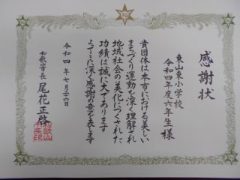 感謝状
東山東小学校
令和四年度六年生様
貴団体は本市における美しい
まちづくり運動を深く理解され
地域社会の美化につくされた
功績は誠に大であります
よってここに深く感謝の意を表します
令和四年七月二十四日
和歌山市長 尾花正啓